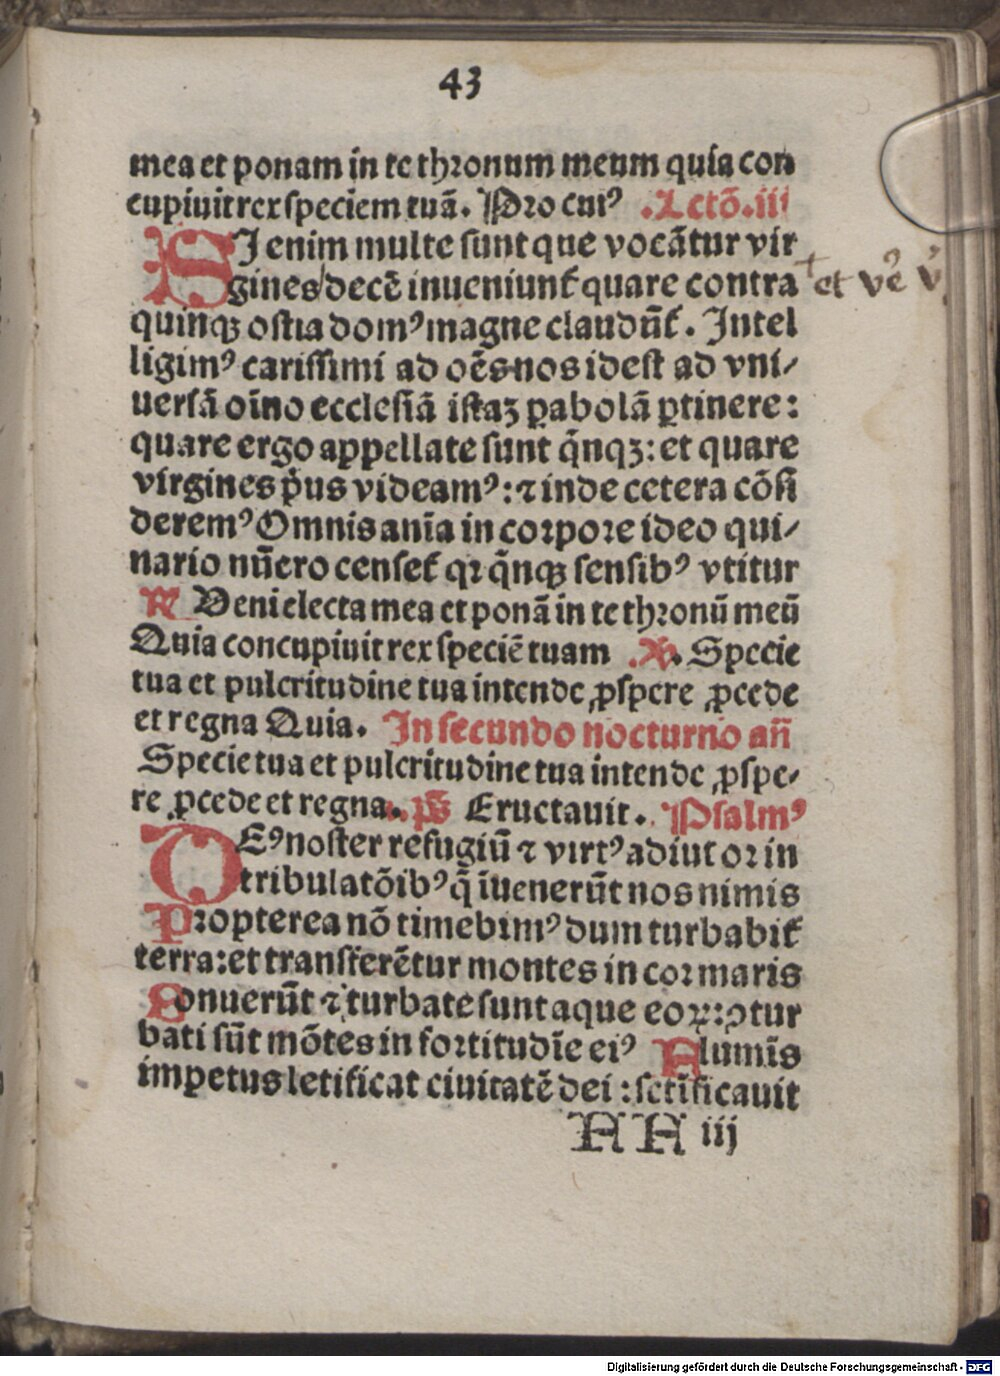 43
mea et ponam in te thronum meum quia con
cupiuit rex speciem tuã. Pro cui⁹ .Lctõ.iii
SI enim multe sunt que vocãtur vir
gines/decẽ inueniunt᷑ quare contra
et
quinqꝫ ostia dom⁹ magne claudũt᷑. Intel
ligim⁹ carissimi ad oẽs nos idest ad vni/
uersã oĩno ecclesiã istaꝫ ꝑabolã ꝑtinere:
quare ergo appellate sunt q̃nqꝫ: et quare
virgines p̃us videam⁹: ⁊ inde cetera cõsi
derem⁹ Omnis anĩa in corpore ideo qui/
nario nũero censet᷑ qꝛ q̃nqꝫ sensib⁹ vtitur
℟ Veni electa mea et ponã in te thronũ meũ
Quia concupiuit rex speciẽ tuam .℣. Specie
tua et pulcritudine tua intende ꝓspere ꝓcede
et regna Quia. In secundo nocturno añ
Specie tua et pulcritudine tua intende ꝓspe/
re ꝓcede et regna. p̃s Eructauit. Psalm⁹
DE⁹ noster refugiũ ⁊ virt⁹ adiutor in
tribulatõib⁹ q̃ ĩuenerũt nos nimis
Propterea nõ timebim⁹ dum turbabit᷑
terra: et transferẽtur montes in cor maris
Sonuerũt ⁊ turbate sunt aque eoꝝ: ꝯtur
bati sũt mõtes in fortitudĩe ei⁹ Flumĩs
impetus letificat ciuitatẽ dei : sctĩficauit
AA iij
Digitalisierung gefördert durch die Deutsche Forschungsgemeinschaft - DFG